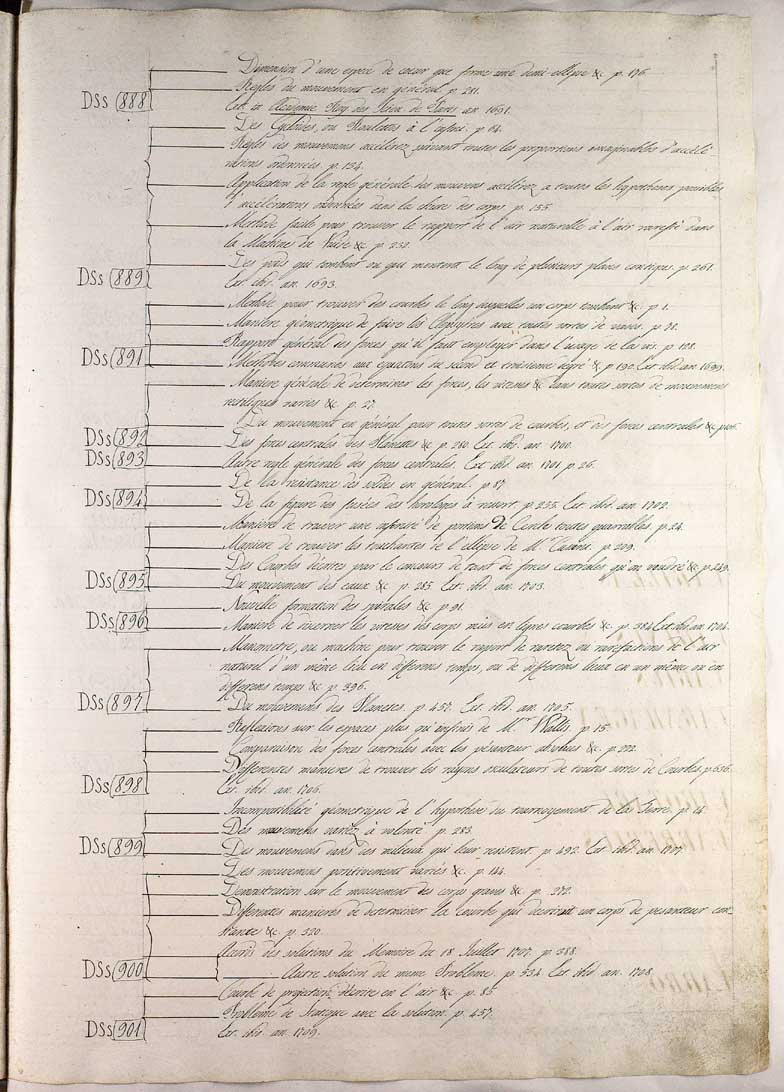 Dimension d'une espece de coeur que forme une demi-ellipse &c p. 176.
Regles du mouvement en general p. 281.
DSs (888 Ext. in Academie Roy. des Scien. de Paris. an. 1691.
Des Cycloides, ou Roulettes à l'infini. p. 14.
Regles des mouvemens accélérez suivant toutes les proportions imaginables d'accélé-
rations ordonnées. p. 134.
Application de la regle générale des mouvens accélérez a toutes les hypotheses possibles
d'accélérations ordonnées dans la chute des corps. p. 155.
Methode facile pour trouver le rapport de l'air naturelle à l'air rarefié dans
la Machine du Vuide &c. p. 232.
Des poids qui tombent ou qui montent le long de plusieurs plans contigus. p. 261.
DSs (889 Ext. ibid. an. 1693.
Methode pour trouver des courbes le long desquelles un corps tombant &c p. 1.
Maniere géometrique de faire les Clepsydres avec toutes sortes de vases. p. 51.
Rapport général des forces qu'il faut employer dans l'usage de la vis. p. 122.
DSs (891 Methodes communes aux equations du second et troisieme degré &c p. 190. Ext. ibid. an 1699.
Maniere générale de determiner les forces, les vitesses &c dans toutes sortes de mouvemens
rectilignes variés &c. p. 27.
Du mouvement en général pour toutes sortes de courbes, et des forces centrales &c
DSs (892 Des forces centrales des Planettes &c p. 280. Ext. ibid. an. 1700.
DSs (893 Autre regle générale des forces centrales. Ext. ibid. an. 1701. p. 26.
De la resistance des solides en general. p. 87.
DSs (894 De la figure des fusées des horologes à ressort. p. 235. Ext. ibid. an. 1702.
Maniere de trouver une infinité de portions de Cercle toutes quarrables. p. 24.
Maniere de trouver les touchantes de l'ellipse de Mr. Cassini. p. 209.
Des Courbes décrites par le concours de tant de forces centrales qu'on voudra &c p. 249.
DSs (895 Du mouvement des eaux &c p. 285. Ext. ibid. an. 1703.
Nouvelle formation des spirales &c p. 91.
DSs (896 Maniere de discerner les vitesses des corps mus en lignes courbes &c p. 384. Ext. ibid. an. 1704.
Manometre, ou machine pour trouver le raport de raretez ou rarefactions de l'air
naturel d'un même lieu en differens temps, ou de differens lieux en un même ou en
differens temps &c p. 396.
DSs (897 Du mouvement des Planetes. p. 457. Ext. ibid. an. 1705.
Reflexions sur les espaces plus qu'infinis de M.r Wallis. p. 15.
Comparaison des forces centrales avec les pesanteurs absolues &c. p. 222.
Differentes manieres de trouver les rayons osculateurs de toutes sortes de Courbes p. 636.
DSs (898 Ext. ibid. an. 1706.
Incompatibilité géometrique de l'hypothese du tournoyement de la Terre. p. 14.
Des mouvemens variez à volonté. p. 283.
DSs (899 Des mouvemens dans des milieux qui leur resistent. p. 492. Ext. ibid. an. 1707.
Des mouvemens primitivement variés &c. p. 144.
Demonstration sur le mouvement des corps graves &c. p. 272.
Differentes manieres de determiner la Courbe que decrirait un corps de pesanteur con-
stante &c. p. 320.
Accord des solutions du Memoire du 18 Juillet 1707. p. 388.
DSs (900 Autre solution du même Probleme. p. 534. Ext. ibid an. 1708.
Courbe de projection décrite en l'air &c. p. 85.
Problême de Statique avec la solution. p. 457.
DSs (901 Ext. ibid. an. 1709.